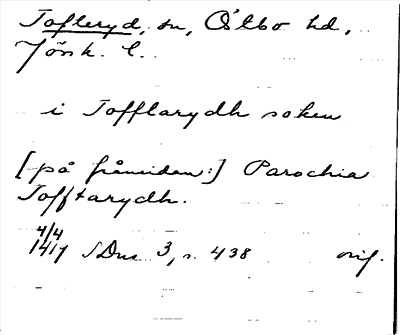 Tofteryd, sn, Östbo hd,
Jönk. l.
i Tofftarydh soken
[på framsidan:] Parochia
Tofftarydh.
4/4
1417 SDns 3, s. 438 orig.